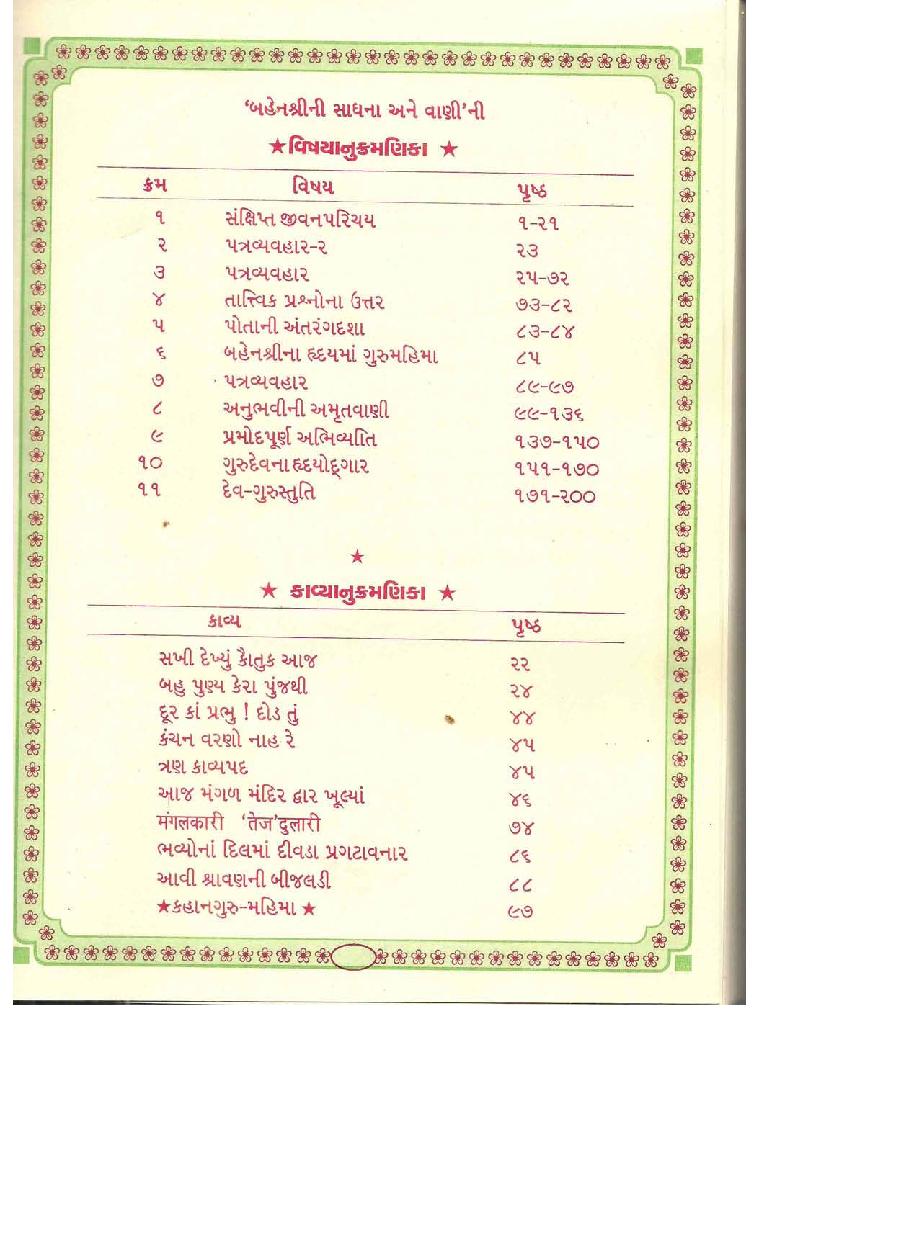 ‘બહેનશ્રીની સાધના અને વાણી’ની
★વિષયાનુક્રમણિકા ★
ક્રમ વિષય પૃષ્ઠ
૧ સંક્ષિપ્ત જીવનપરિચય ૧-૨૧
૨ પત્રવ્યવહાર-૨ ૨૩
૩ પત્રવ્યવહાર ૨૫-૭૨
૪ તાત્ત્વિક પ્રશ્નોના ઉત્તર ૭૩-૮૨
૫ પોતાની અંતરંગદશા ૮૩-૮૪
૬ બહેનશ્રીના હૃદયમાં ગુરુમહિમા ૮૫
૭ પત્રવ્યવહાર ૮૯-૯૭
૮ અનુભવીની અમૃતવાણી ૯૯-૧૩૬
૯ પ્રમોદપૂર્ણ અભિવ્યક્તિ ૧૩૭-૧૫૦
૧૦ ગુરુદેવના હૃદયોદ્ગાર ૧૫૧-૧૭૦
૧૧ દેવ-ગુરુસ્તુતિ ૧૭૧-૨૦૦
★
★ કાવ્યાનુક્રમણિકા ★
કાવ્ય પૃષ્ઠ
સખી દેખ્યું કૌતુક આજ ૨૨
બહુ પુણ્ય કેરા પુંજથી ૨૪
દૂર કાં પ્રભુ ! દોડ તું ૪૪
કંચન વરણો નાહ રે ૪૫
ત્રણ કાવ્યપદ ૪૫
આજ મંગળ મંદિર દ્વાર ખૂલ્યાં ૪૬
मंगलकारी ‘तेज’दुलारी ૭૪
ભવ્યોનાં દિલમાં દીવડા પ્રગટાવનાર ૮૬
આવી શ્રાવણની બીજલડી ૮૮
★કહાનગુરુ-મહિમા ★ ૯૭